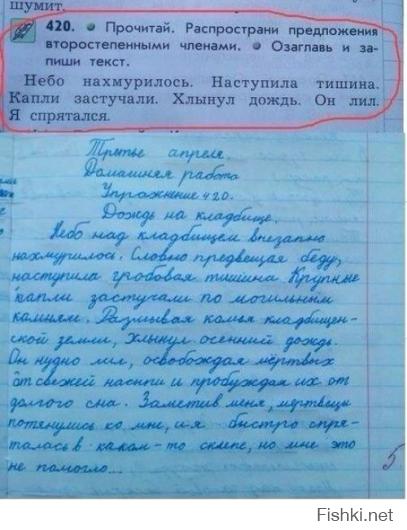 шумит.
420. • Прочитай. Распространи предложения
второстепенными членами. • Озаглавь и за-
пиши текст.
Небо нахмурилось. Наступила тишина.
Капли застучали. Хлынул дождь. Он лил.
Я спрятался.
Третье апреля.
Домашняя работа
Упражнение 420.
Дождь на кладбище.
Небо над кладбищем внезапно
нахмурилось. Словно предвещая беду,
наступила гробовая тишина. Крупные
капли застучали по могильным
камням. Размывая комья кладбищен-
ской земли, хлынул осенний дождь.
Он нудно лил, освобождая мёртвых
от свежей насыпи и пробуждая их от
долгого сна. Заметив меня, мертвецы
потянулись ко мне, и я быстро спря-
талась в каком-то склепе, но мне это
не помогло...
5
Fishki.net